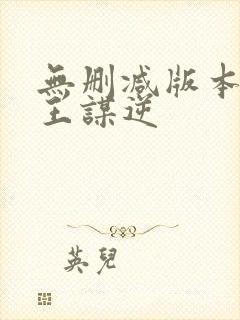 無删减版本
王謀逆
英兒